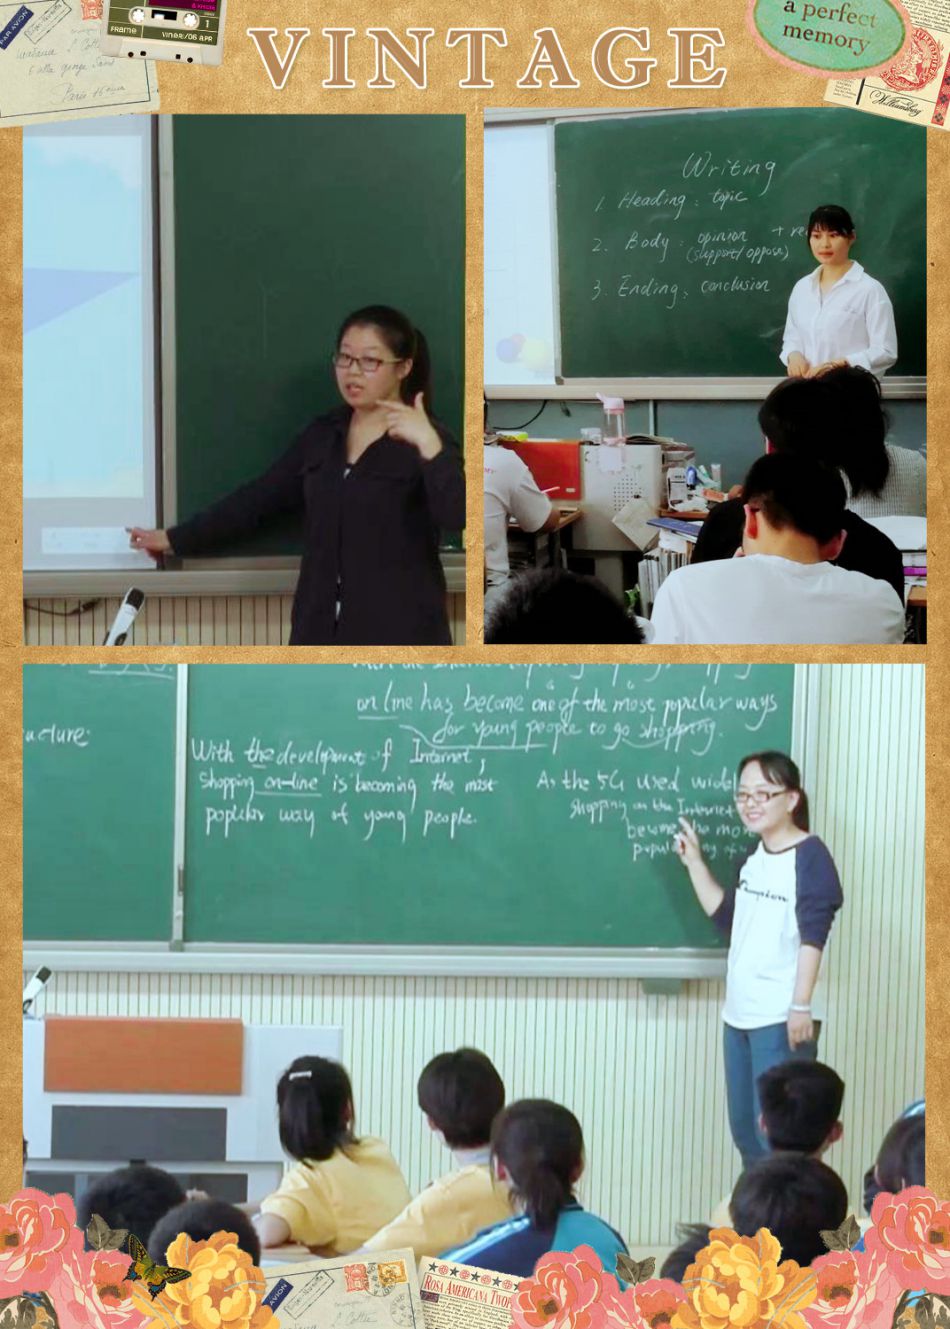 PAR AVION
Frame
VINER./06 APR
1
VINTAGE
a perfect
memory
Williamsburg
Paris
Writing
1. Heading: topic
2. Body: opinion + re
(support/oppose)
3. Ending: conclusion
on line has become one of the most popular ways
for young people to go shopping.
ucture
With the development of Internet,
shopping on-line is becoming the most
popular way of young people.
As the 5G used widel
shopping on the Internet
become the mo
popul
AVION
ROSA AMERICANA TWOP